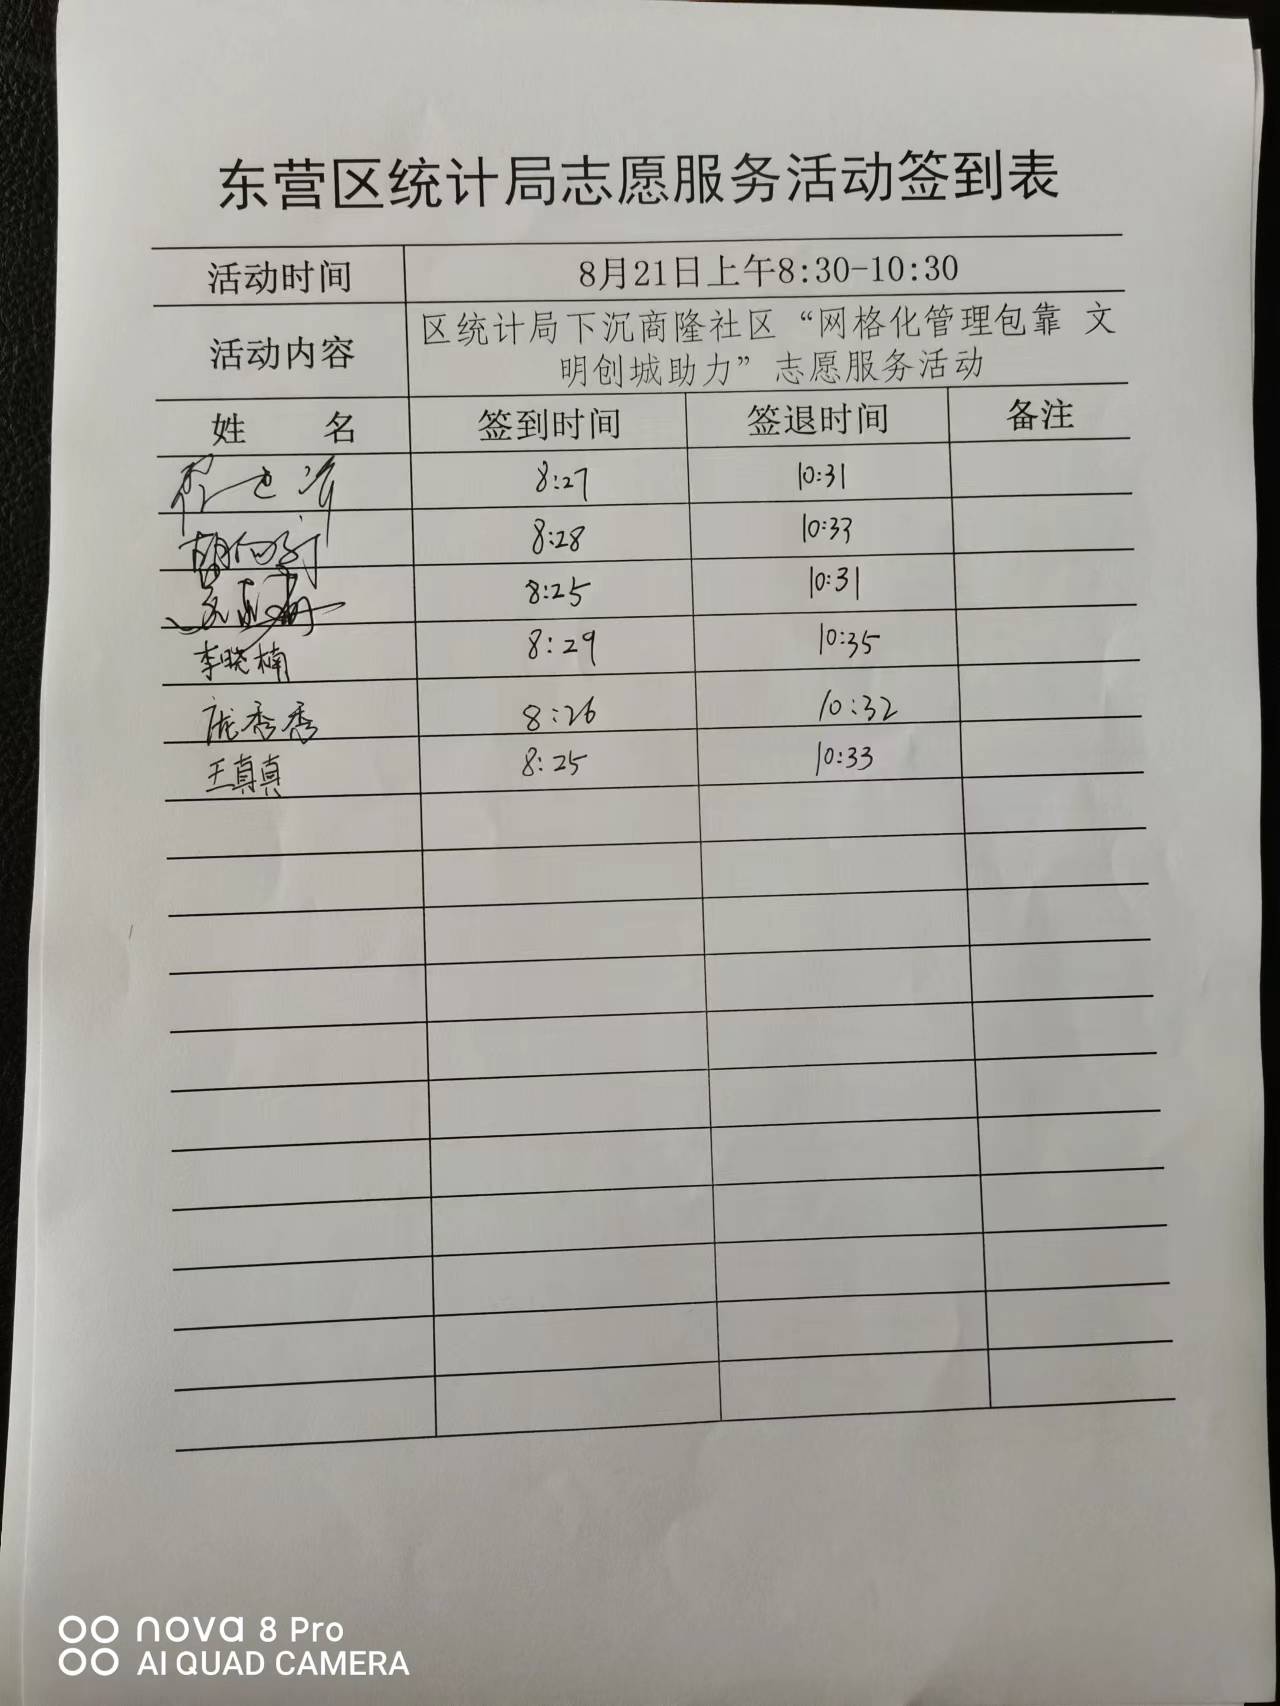 东营区统计局志愿服务活动签到表
活动时间 8月21日上午8:30-10:30
活动内容 区统计局下沉商隆社区“网格化管理包靠 文
明创城助力”志愿服务活动
姓 名 签到时间 签退时间 备注
8:27 10:31
8:28 10:33
8:25 10:31
李晓楠 8:29 10:35
庞秀秀 8:26 10:32
王真真 8:25 10:33
nova 8 Pro
AI QUAD CAMERA